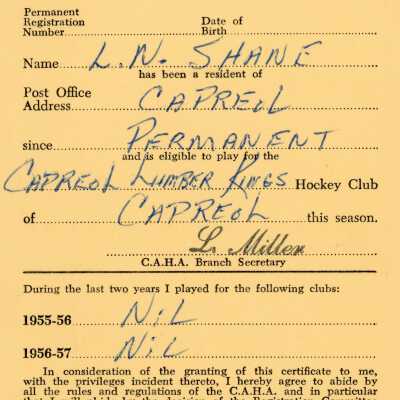 Permanent
Registration Date of
Number Birth
Name L. N. SHANE
has been a resident of
Post Office
Address CAPREOL
since PERMANENT
and is eligible to play for the
CAPREOL LUMBER KINGS Hockey Club
of CAPREOL this season.
L. Miller
C.A.H.A. Branch Secretary
During the last two years I played for the following clubs:
1955-56 NiL
1956-57 NiL
In consideration of the granting of this certificate to me,
with the privileges incident thereto, I hereby agree to abide by
all the rules and regulations of the C.A.H.A. and in particular
that I will abide by the decision of the Registration Committee